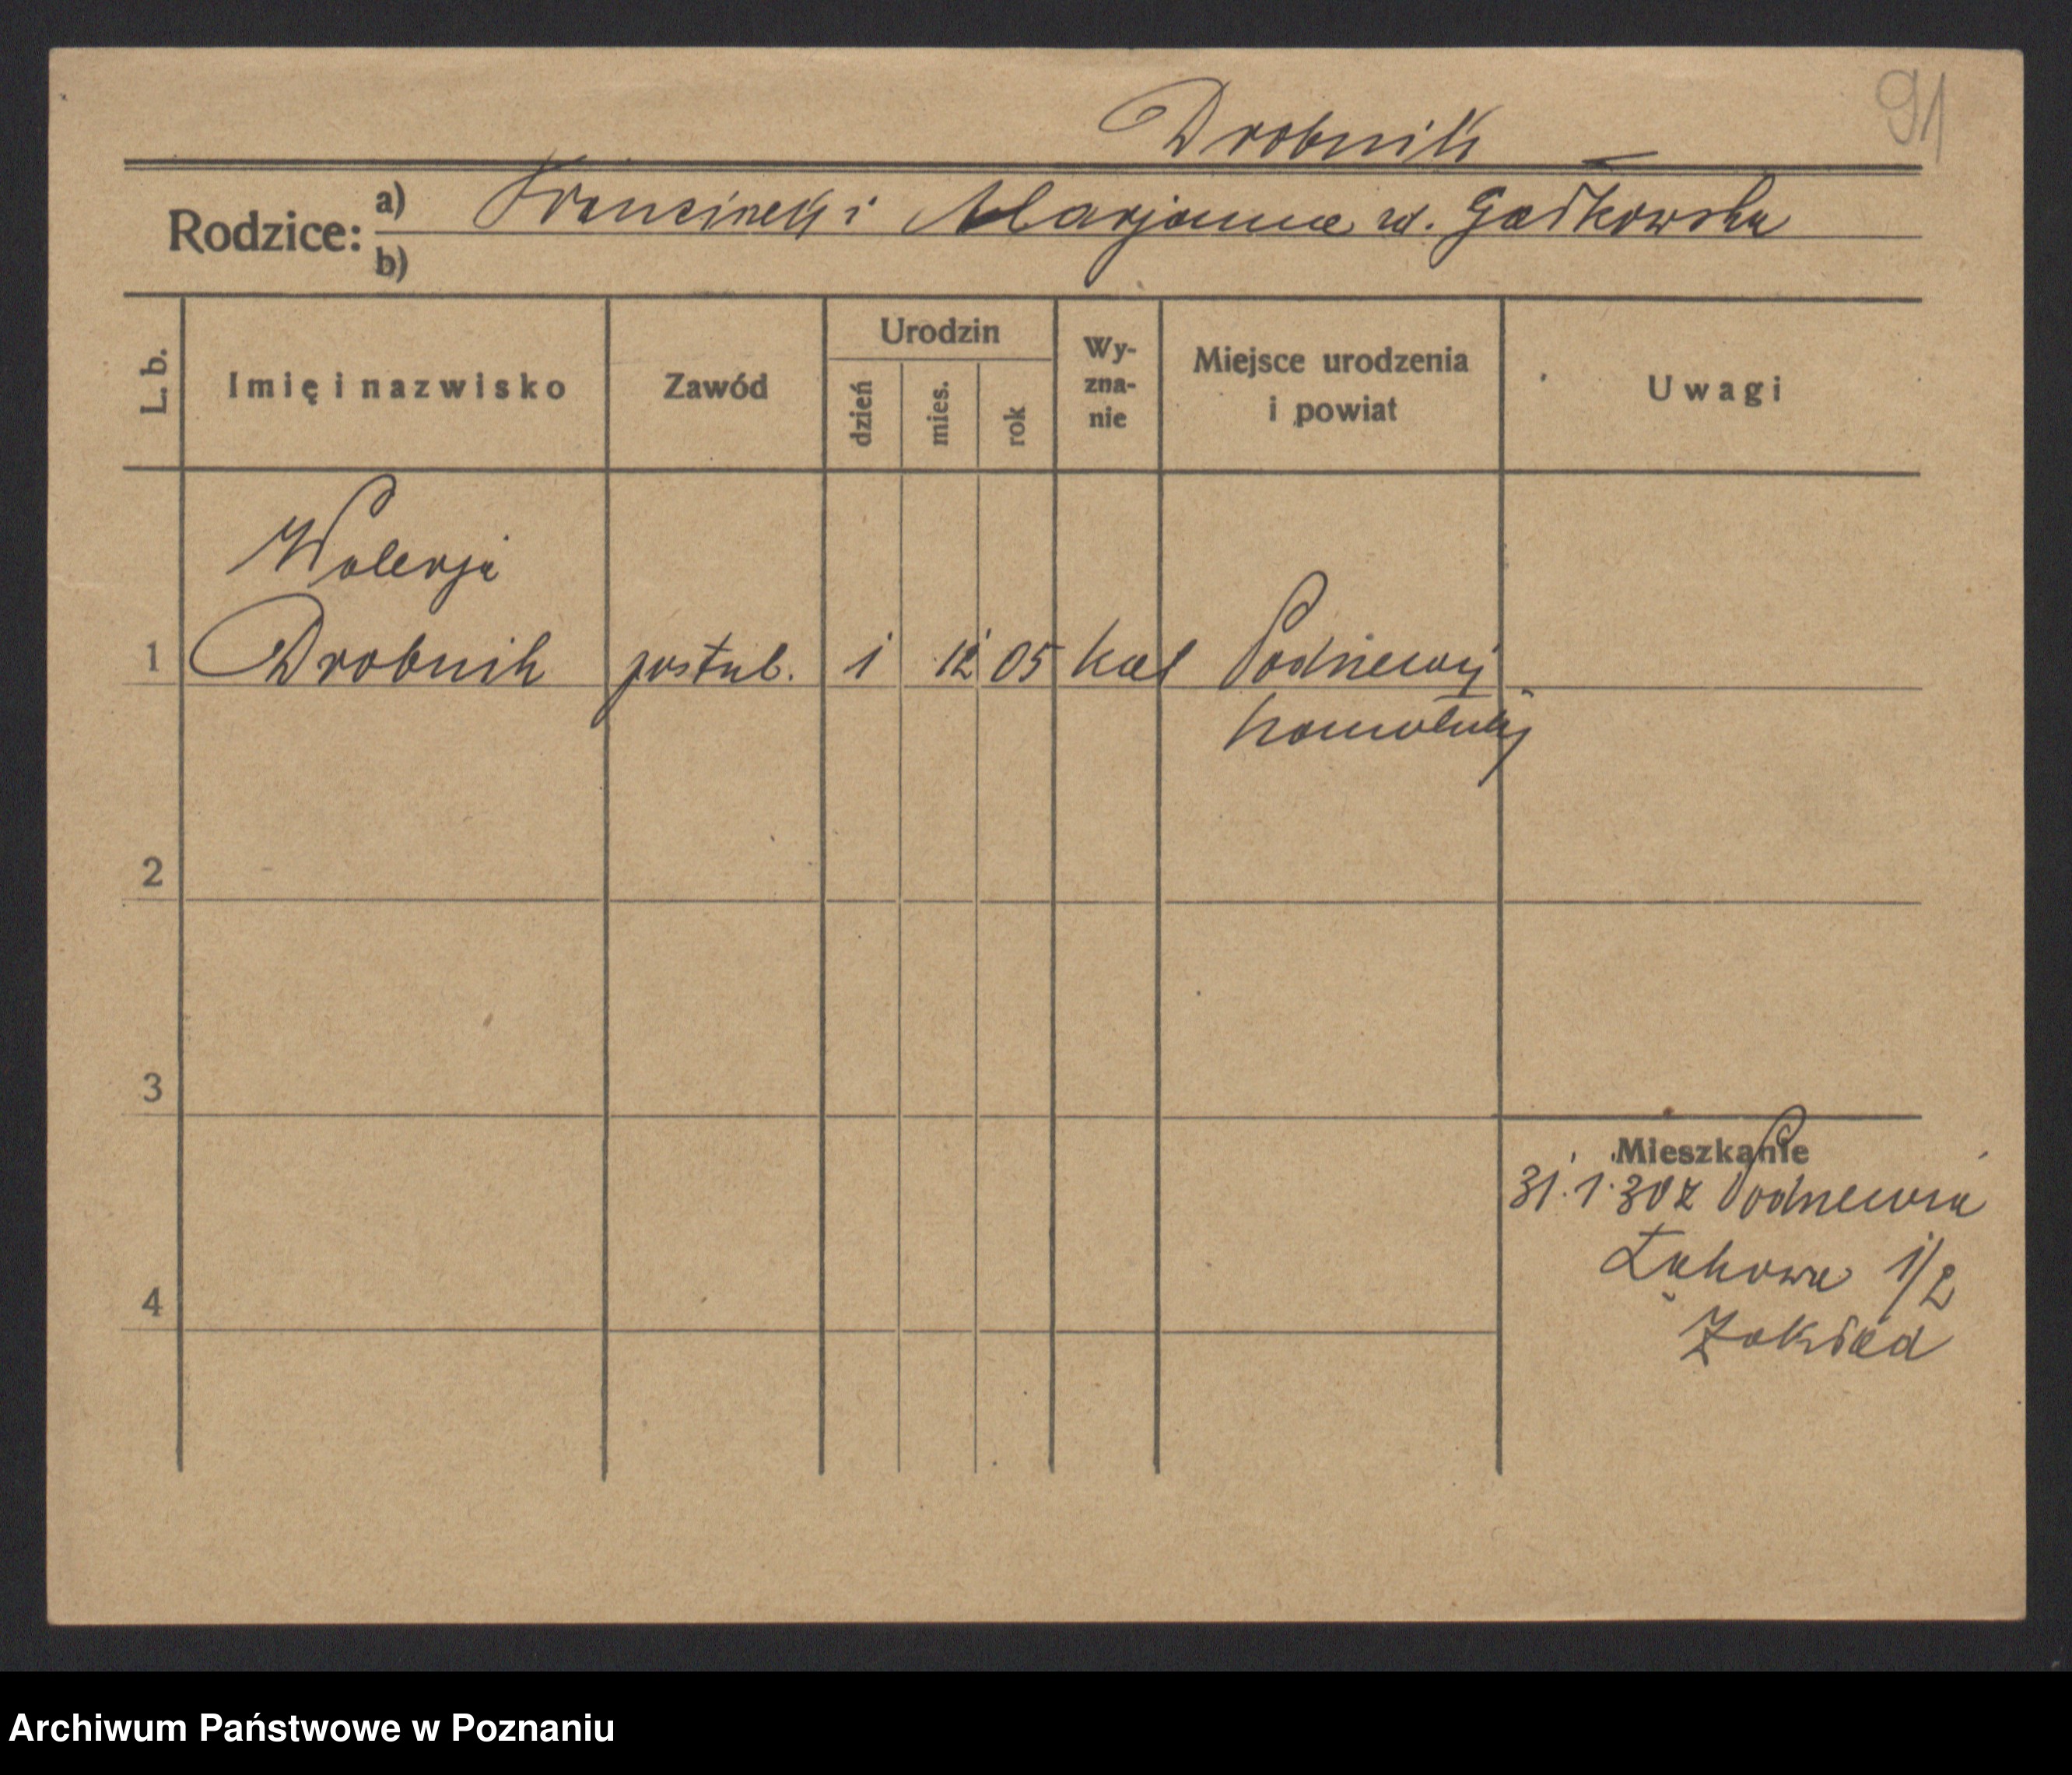 91
Drobnik
Rodzice: a) Franciszek i Marjanna rd. Gałkowska
b)
L. b. Imię i nazwisko Zawód Urodzin dzień mies. rok Wy-zna-nie Miejsce urodzenia i powiat Uwagi
Walerja
1 Drobnik postul. 1 12 05 kat Podrzewij
2
3
Mieszkanie
31.1.30 z Podrzewia
Łąkowa 1/2
4 Zakład
Archiwum Państwowe w Poznaniu